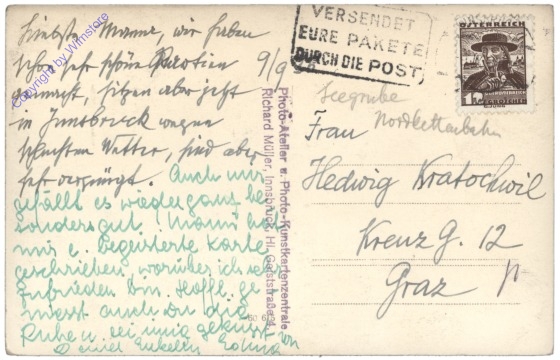 Liebste Mama, wir haben
schon sehr schöne Partien
gemacht, sitzen aber jetzt
in Innsbruck wegen
schlechtem Wetter, sind aber
sehr vergnügt. Auch mir
gefällt es wieder ganz be
sonders gut. Mama hat
mir e. begeisterte Karte
geschrieben, worüber ich sehr
zufrieden bin. Hoffe ge
niesst auch du die
Ruhe. Sei innig geküsst von
Deiner Enkelin
9/9
Copyright by Wimstore
Photo-Atelier u. Photo-Kunstkartenzentrale
Richard Müller, Innsbruck, Hl. Geiststraße
VERSENDET
EURE PAKETE
DURCH DIE POST
ÖSTERREICH
GROSCHEN
Seegrube
Nordkettenbahn
Frau
Hedwig Kratochwil
Kreuz G. 12
Graz